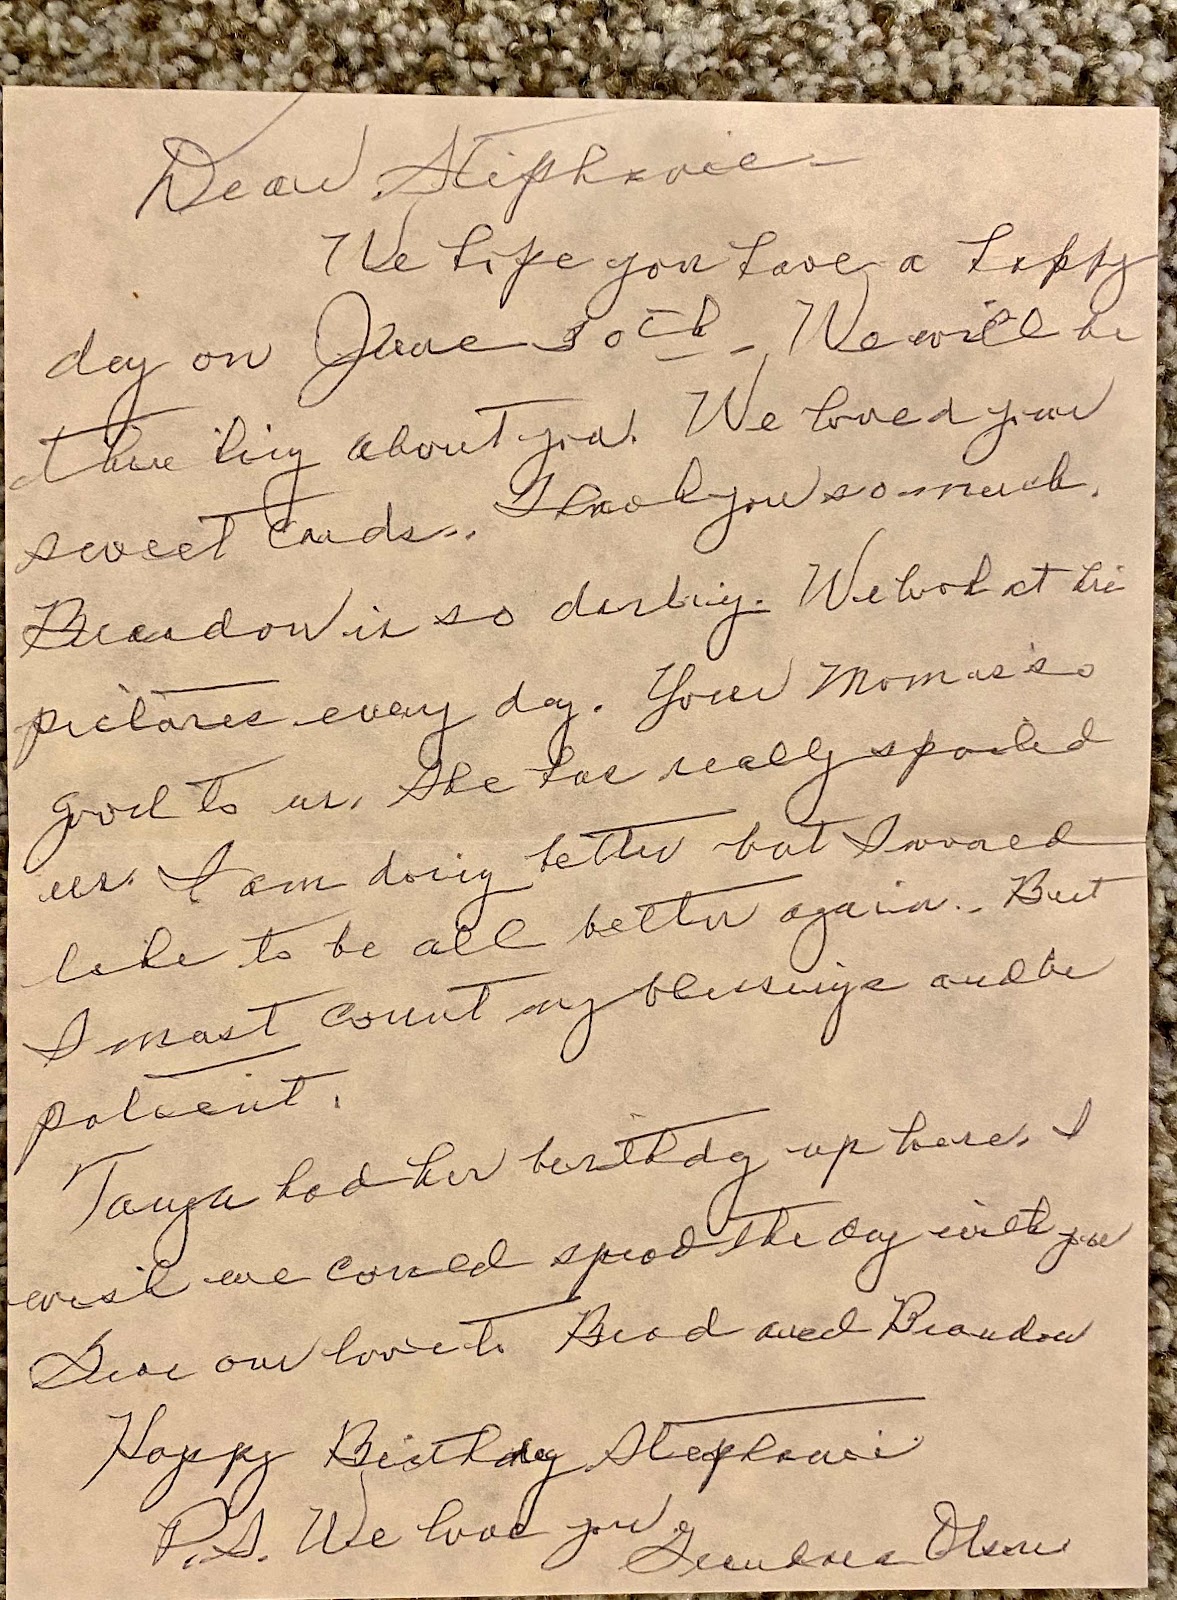 Dear Stephanie -
We hope you have a happy
day on June 30th - We will be
thinking about you. We loved your
sweet cards.. Thank you so much.
Brandon is so darling. We look at his
pictures every day. Your Mom is so
good to us. She has really spoiled
us. I am doing better but I would
like to be all better again.. But
I must count my blessings and be
patient.
Tanya had her birthday up here. I
wish we could spend the day with you
Give our love to Brad and Brandon
Happy Birthday Stephanie
P.S. We love you. Grandma Olsen